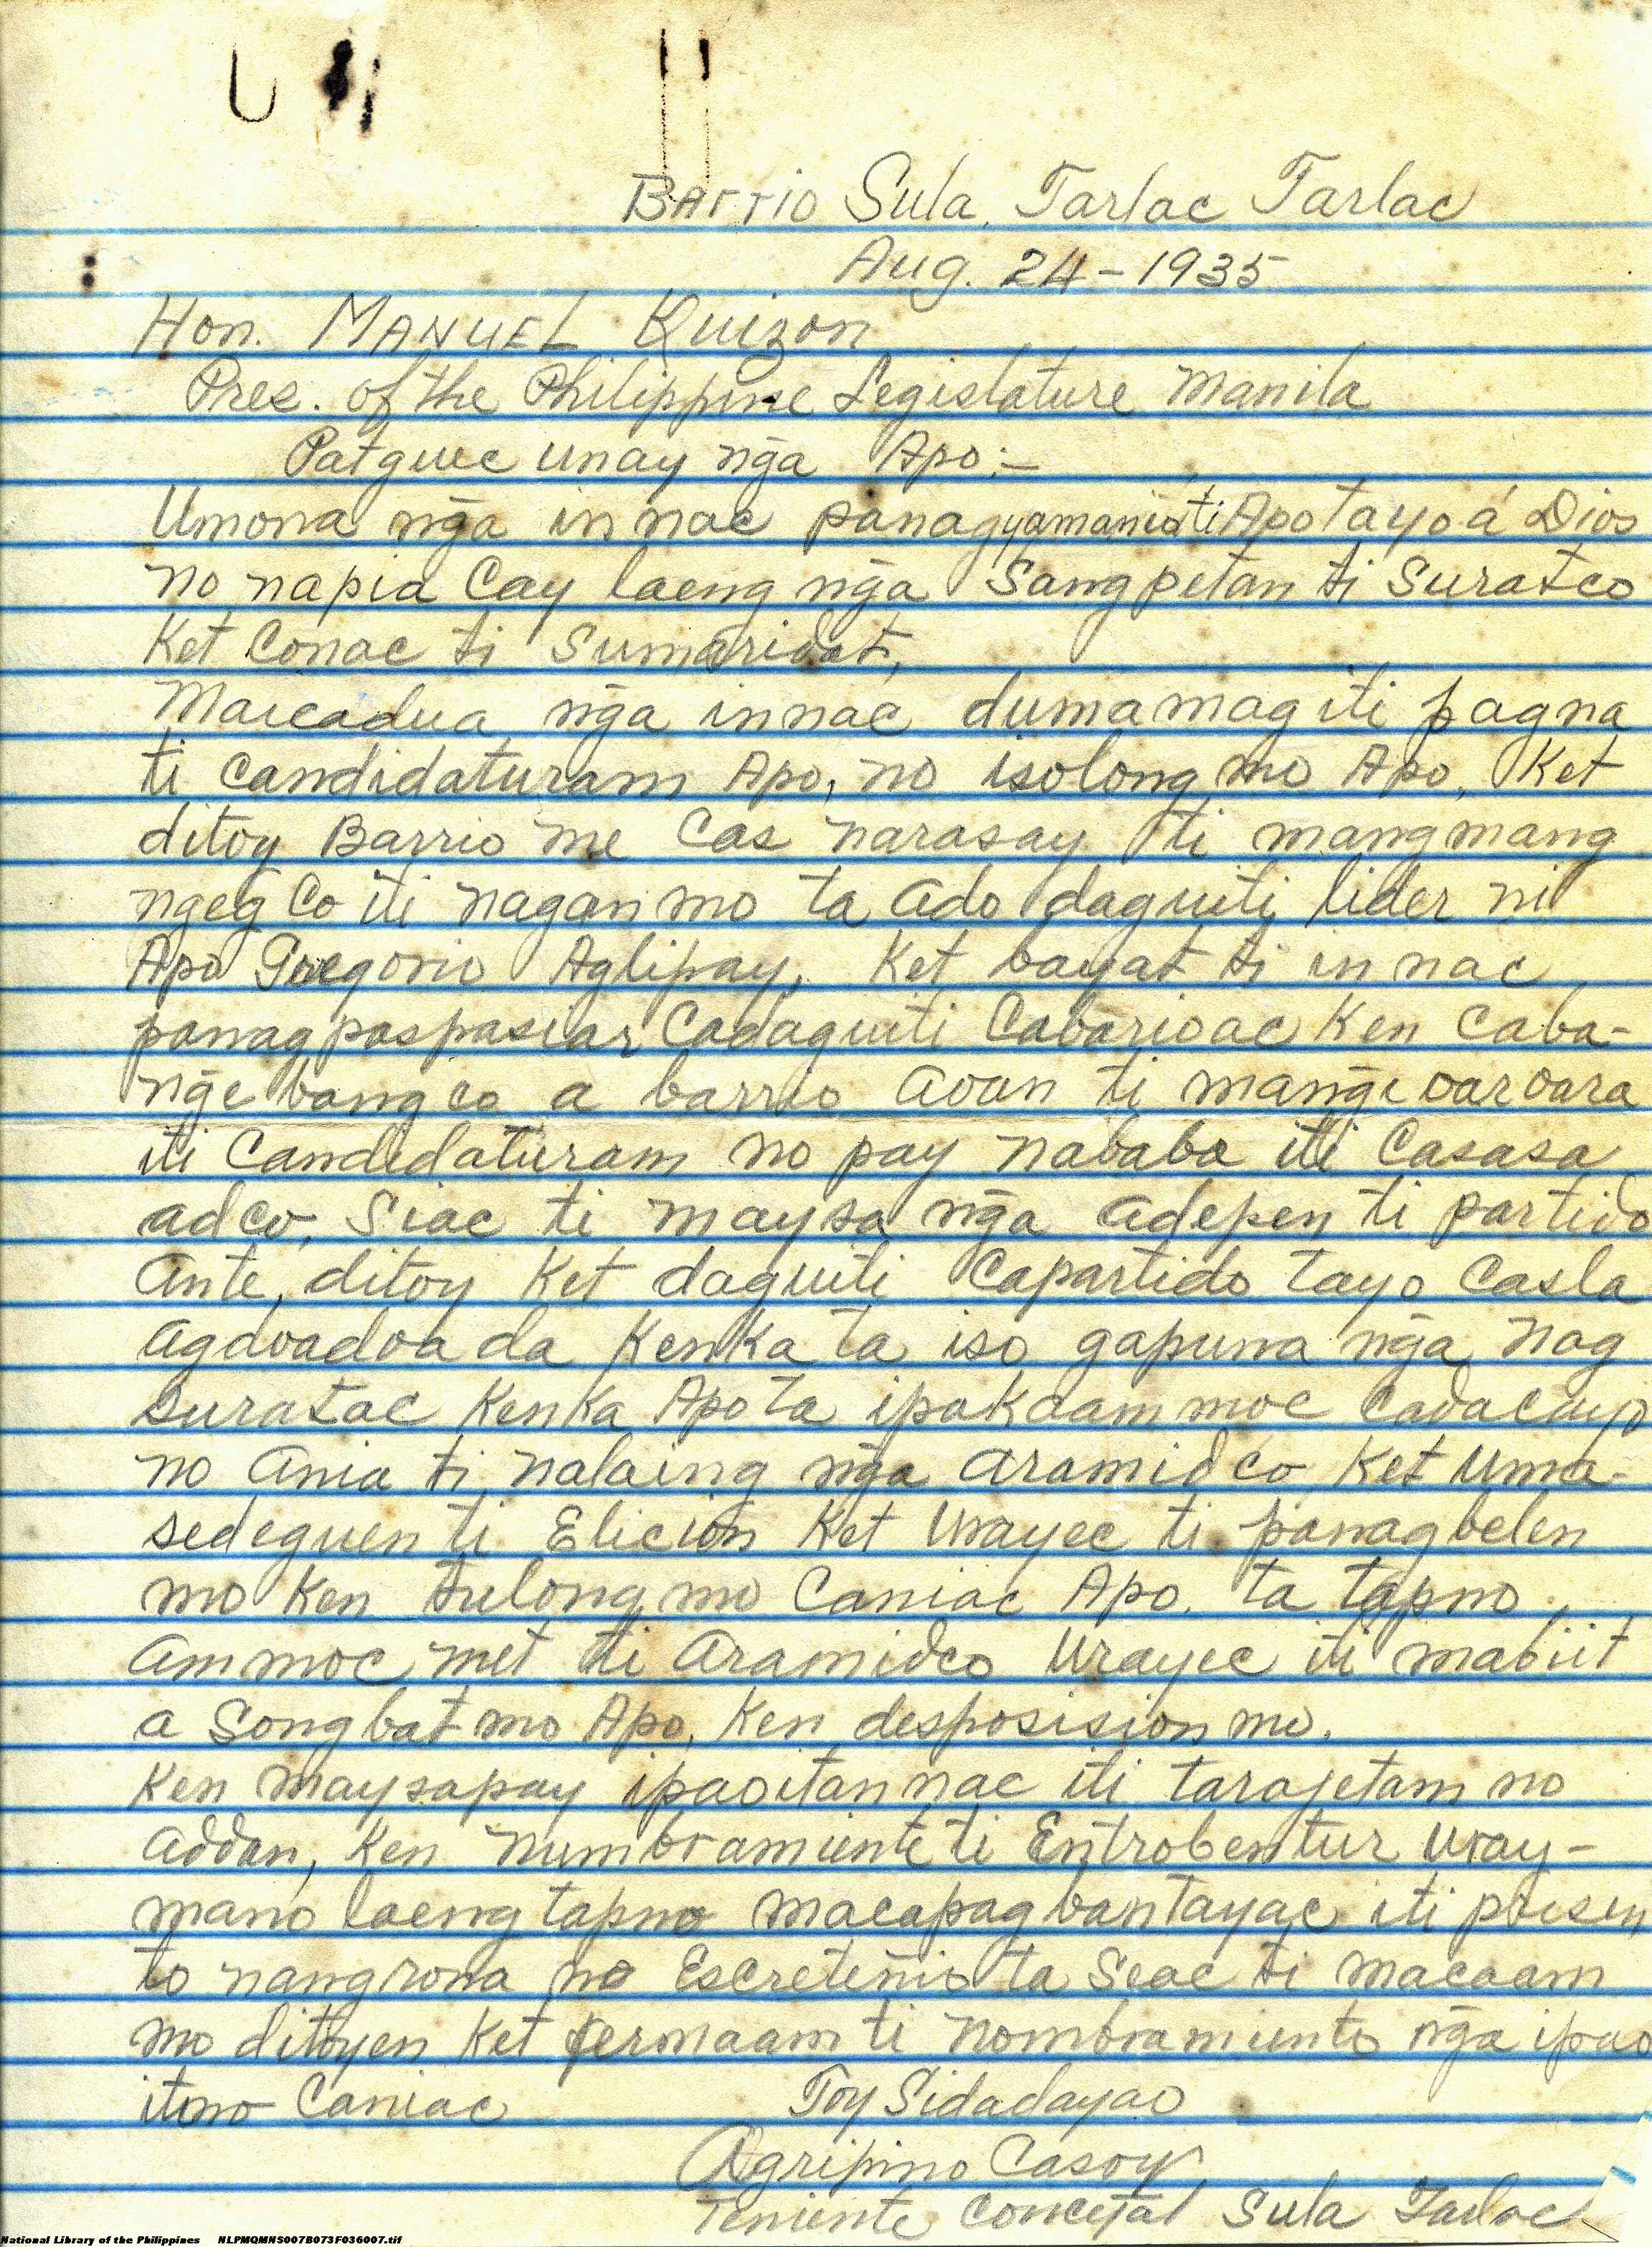 Barrio Sula, Tarlac Tarlac
Aug. 24-1935
Hon. MANUEL Kuizon
Pres. of the Philippine Legislature Manila
Patguec unay nga Apo:-
Umona nga innac panagyamaniti Apotayo á Dios
no napia Cay laeng nga Sangpetan ti Suratco
Ket Conac ti Sumaridat,
Maicadua nga innac dumamag iti pagna
ti candidaturam Apo, no isolong mo Apo, Ket
ditoy Barrio me Cas narasay ti mangmang
ngeg Co iti nagan mo ta Ado daguiti lider ni
Apo Gregorio Aglipay, Ket bayat ti innac
panagpaspasiar Cadaguiti Cabarioac Ken Caba-
nge bangco a barrio Aoan ti mangi oar oara
iti Candidaturam no pay nababa iti Casasa
adco, Siac ti maysa nga adepen ti partido
Ante, ditoy Ket daguiti Capartido tayo Casla
Agdoadoa da KenKa ta iso gapuna nga nag
suratac KenKa Apo ta ipakaammoc Cadacayo
no Ania ti nalaing nga aramidco Ket Uma-
sedeguen ti Elicion Ket Urayec ti panagbelen
mo Ken tulong mo Caniac Apo. ta tapno
Ammoc met ti Aramidco Urayec iti mabiit
a Songbat mo Apo, Ken desposision mo.
Ken maysapay ipaoitannac iti tarajetam no
addan, Ken numbramiente ti Entrobentur Uray-
mano laeng tapno macapagbantayac iti presen
to nangrona no Escretenio ta Seac ti macaam
mo ditoyen Ket fermaam ti nombramiento nga ipao
itmo Caniac
Toy Sidadayao
Agripino Casoy
Teniente Concejal Sula Tarlac
National Library of the Philippines NLPMQMNS007B073F036007.tif